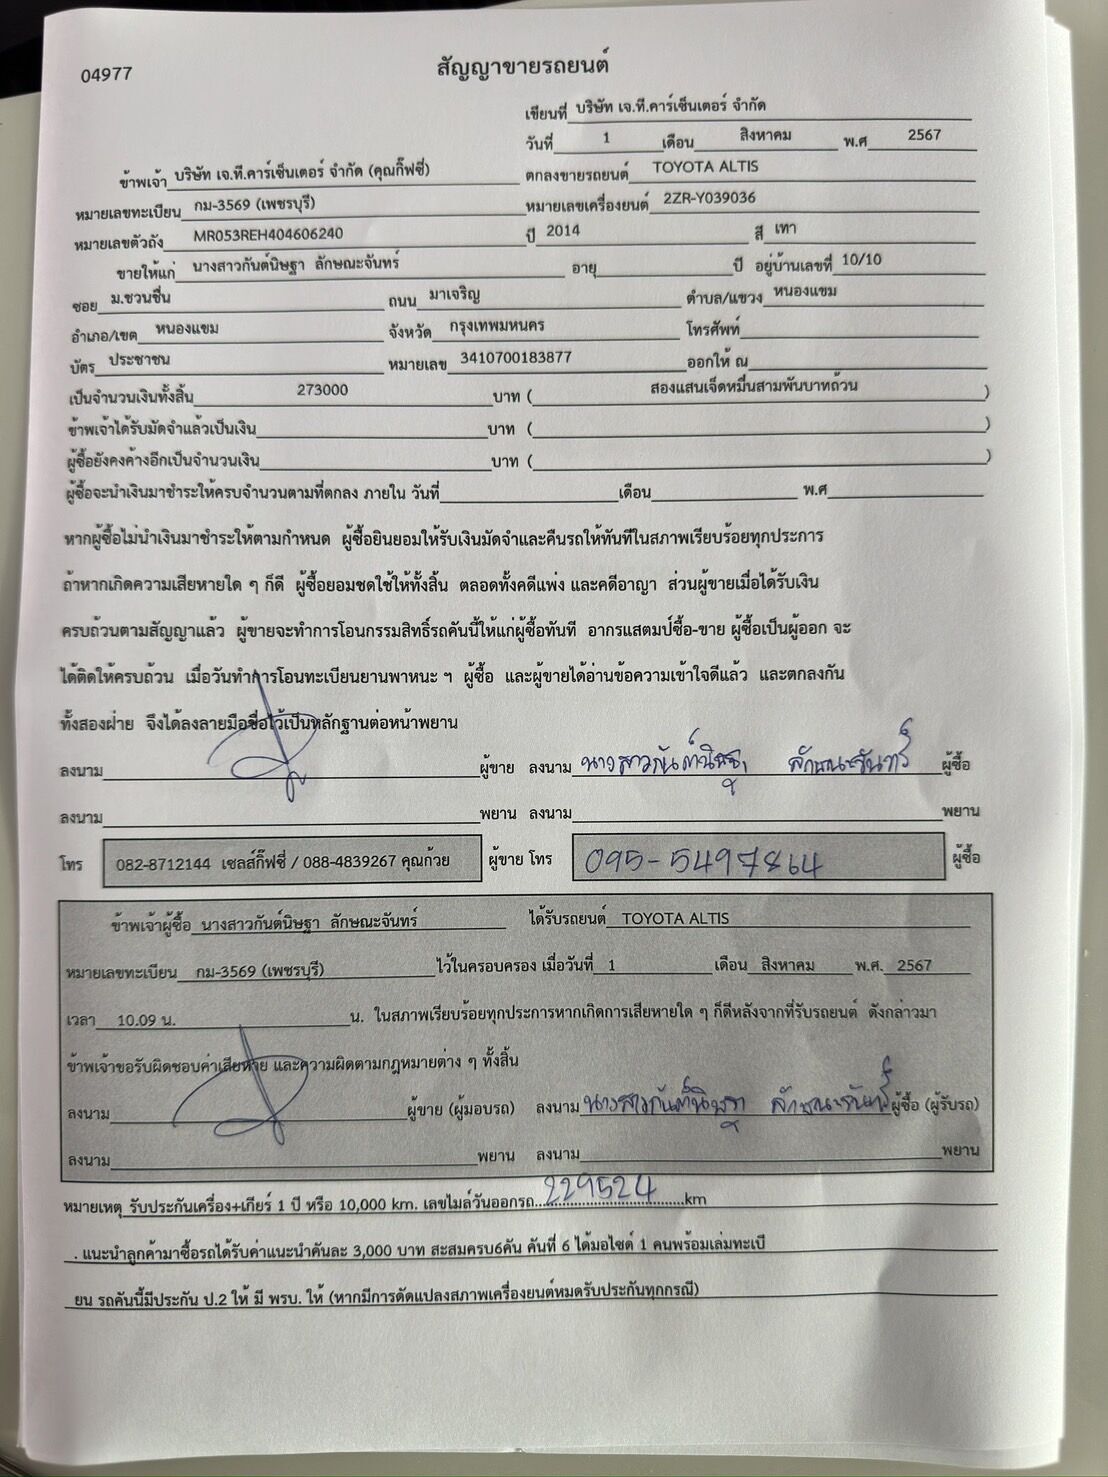 04977
สัญญาขายรถยนต์
เขียนที่ บริษัท เจ.ที.คาร์เซ็นเตอร์ จำกัด
วันที่ 1 เดือน สิงหาคม พ.ศ 2567
ข้าพเจ้า บริษัท เจ.ที.คาร์เซ็นเตอร์ จำกัด (คุณกิ๊ฟซี่) ตกลงขายรถยนต์ TOYOTA ALTIS
หมายเลขทะเบียน กม-3569 (เพชรบุรี) หมายเลขเครื่องยนต์ 2ZR-Y039036
หมายเลขตัวถัง MR053REH404606240 ปี 2014 สี เทา
ขายให้แก่ นางสาวกันต์นิษฐา ลักษณะจันทร์ อายุ ปี อยู่บ้านเลขที่ 10/10
ซอย ม.ชวนชื่น ถนน มาเจริญ ตำบล/แขวง หนองแขม
อำเภอ/เขต หนองแขม จังหวัด กรุงเทพมหนคร โทรศัพท์
บัตร ประชาชน หมายเลข 3410700183877 ออกให้ ณ
เป็นจำนวนเงินทั้งสิ้น 273000 บาท ( สองแสนเจ็ดหมื่นสามพันบาทถ้วน )
ข้าพเจ้าได้รับมัดจำแล้วเป็นเงิน บาท ( )
ผู้ซื้อยังคงค้างอีกเป็นจำนวนเงิน บาท ( )
ผู้ซื้อจะนำเงินมาชำระให้ครบจำนวนตามที่ตกลง ภายใน วันที่ เดือน พ.ศ
หากผู้ซื้อไม่นำเงินมาชำระให้ตามกำหนด ผู้ซื้อยินยอมให้รับเงินมัดจำและคืนรถให้ทันทีในสภาพเรียบร้อยทุกประการ
ถ้าหากเกิดความเสียหายใด ๆ ก็ดี ผู้ซื้อยอมชดใช้ให้ทั้งสิ้น ตลอดทั้งคดีแพ่ง และคดีอาญา ส่วนผู้ขายเมื่อได้รับเงิน
ครบถ้วนตามสัญญาแล้ว ผู้ขายจะทำการโอนกรรมสิทธิ์รถคันนี้ให้แก่ผู้ซื้อทันที อากรแสตมป์ซื้อ-ขาย ผู้ซื้อเป็นผู้ออก จะ
ได้ติดให้ครบถ้วน เมื่อวันทำการโอนทะเบียนยานพาหนะ ฯ ผู้ซื้อ และผู้ขายได้อ่านข้อความเข้าใจดีแล้ว และตกลงกัน
ทั้งสองฝ่าย จึงได้ลงลายมือชื่อไว้เป็นหลักฐานต่อหน้าพยาน
ลงนาม ผู้ขาย ลงนาม นางสาวกันต์นิษฐา ลักษณะจันทร์ ผู้ซื้อ
ลงนาม พยาน ลงนาม พยาน
โทร 082-8712144 เซลส์กิ๊ฟซี่ / 088-4839267 คุณก้วย ผู้ขาย โทร 095-5497864 ผู้ซื้อ
ข้าพเจ้าผู้ซื้อ นางสาวกันต์นิษฐา ลักษณะจันทร์ ได้รับรถยนต์ TOYOTA ALTIS
หมายเลขทะเบียน กม-3569 (เพชรบุรี) ไว้ในครอบครอง เมื่อวันที่ 1 เดือน สิงหาคม พ.ศ. 2567
เวลา 10.09 น. น. ในสภาพเรียบร้อยทุกประการหากเกิดการเสียหายใด ๆ ก็ดีหลังจากที่รับรถยนต์ ดังกล่าวมา
ข้าพเจ้าขอรับผิดชอบค่าเสียหาย และความผิดตามกฎหมายต่าง ๆ ทั้งสิ้น
ลงนาม ผู้ขาย (ผู้มอบรถ) ลงนาม นางสาวกันต์นิษฐา ลักษณะจันทร์ ผู้ซื้อ (ผู้รับรถ)
ลงนาม พยาน ลงนาม พยาน
หมายเหตุ รับประกันเครื่อง+เกียร์ 1 ปี หรือ 10,000 km. เลขไมล์วันออกรถ 229524 km
. แนะนำลูกค้ามาซื้อรถได้รับค่าแนะนำคันละ 3,000 บาท สะสมครบ6คัน คันที่ 6 ได้มอไซด์ 1 คนพร้อมเล่มทะเบี
ยน รถคันนี้มีประกัน ป.2 ให้ มี พรบ. ให้ (หากมีการดัดแปลงสภาพเครื่องยนต์หมดรับประกันทุกกรณี)